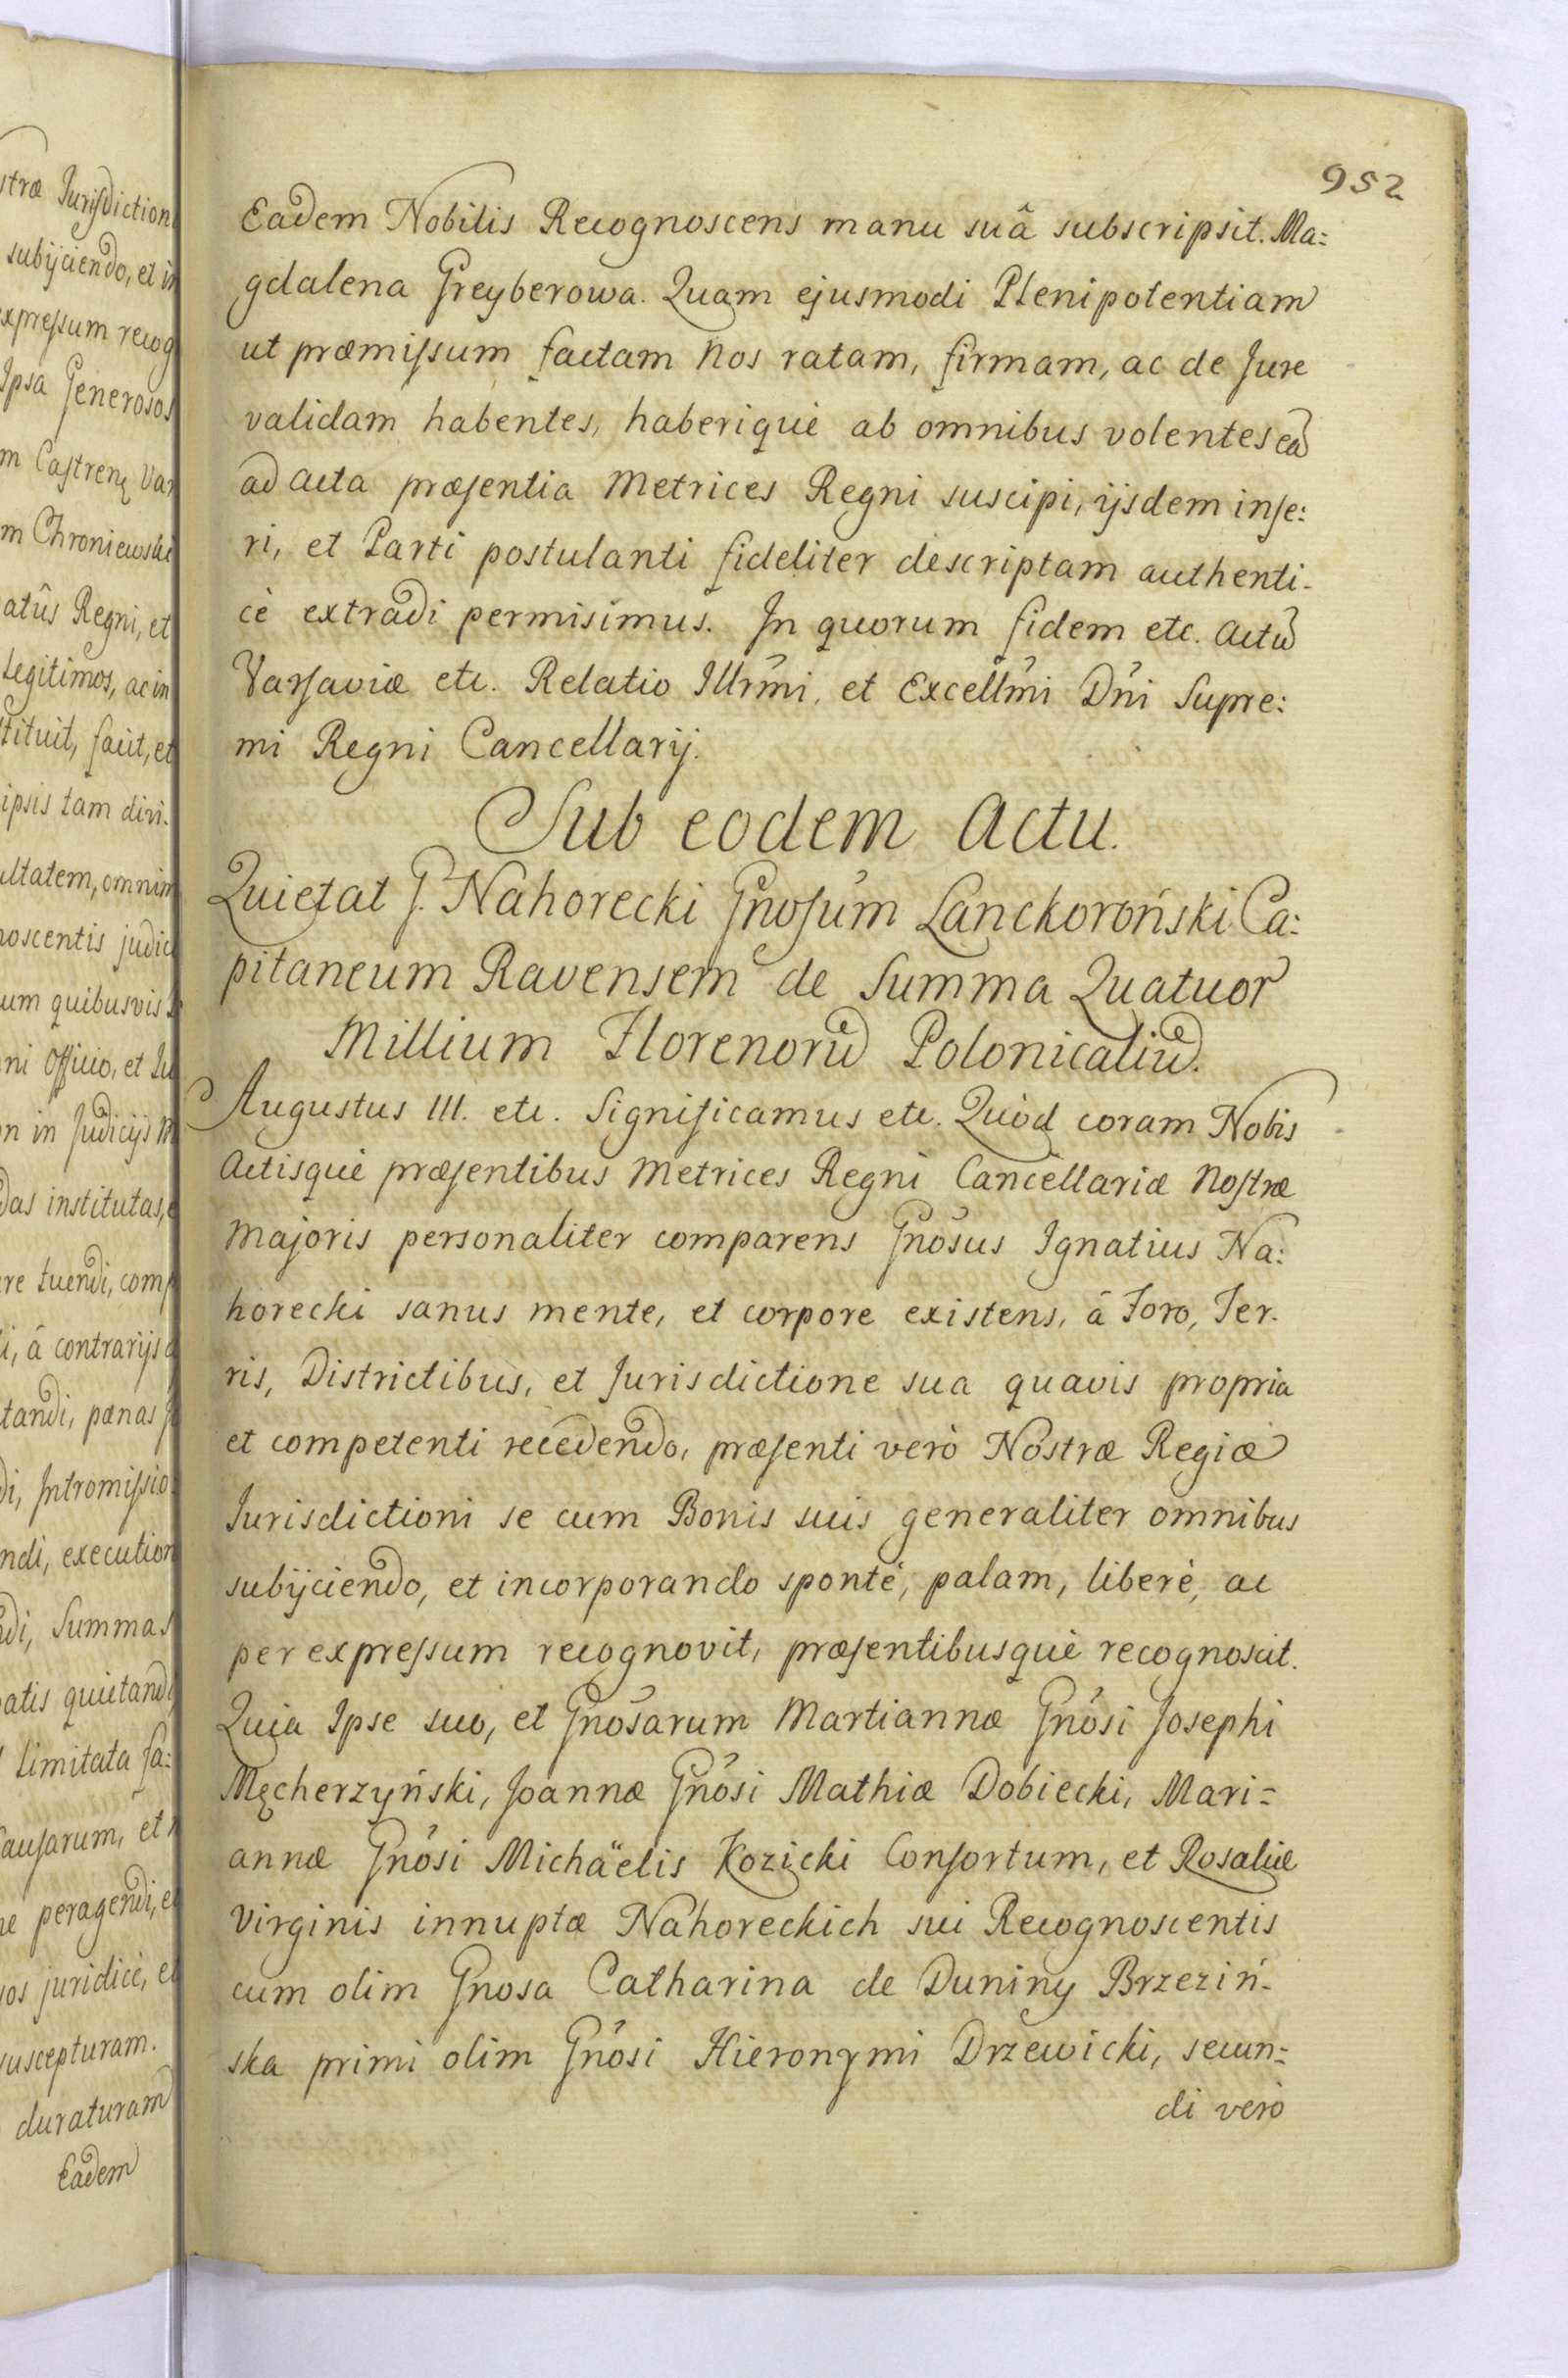 952
Eadem Nobilis Recognoscens manu suâ subscripsit. Ma:
gdalena Greyberowa. Quam ejusmodi Plenipotentiam
ut præmissum factam Nos ratam, firmam, ac de Jure
validam habentes, haberiquè ab omnibus volentes eã
ad acta præsentia Metrices Regni suscipi, ijsdem inse:
ri, et Parti postulanti fideliter descriptam authenti-
cè extradi permisimus. In quorum fidem etc. Actũ
Varsaviæ etc. Relatio Illr̃mi, et Excell̃mi Dñi Supre:
mi Regni Cancellarij.
Sub eodem Actu.
Quietat G. Nahorecki Gnosum Lanckoroński Ca:
pitaneum Ravensem de Summa Quatuor
Millium Florenorũ Polonicaliũ.
Augustus III. etc. Significamus etc. Quòd coram Nobis
Actisquè præsentibus Metrices Regni Cancellariæ Nostræ
Majoris personaliter comparens Gnõsus Ignatius Na:
horecki sanus mente, et corpore existens, â Foro, Ter-
ris, Districtibus, et Jurisdictione sua quavis propria
et competenti recedendo, præsenti verò Nostræ Regiæ
Jurisdictioni se cum Bonis suis generaliter omnibus
subijciendo, et incorporando spontè, palam, liberè, ac
per expressum recognovit, præsentibusquè recognoscit.
Quia Ipse suo, et Gnõsarum Martiannæ Gnõsi Josephi
Męcherzyński, Joannæ Gnõsi Mathiæ Dobiecki, Mari-
annæ Gnõsi Michäelis Kozicki Consortum, et Rosaliæ
Virginis innuptæ Nahoreckich sui Recognoscentis
cum olim Gnosa Catharina de Duniny Brzeziń-
ska primi olim Gnõsi Hieronymi Drzewicki, secun-
di verò
stræ Jurisdiction
subijciendo, et in
expressum recog
Ipsa Generosos
m Castren̨ Var
m Chroniewski
atûs Regni, et
Legitimos, ac in
tituit, facit, et
ipsis tam divi-
ultatem, omnim
noscentis judic
um quibusvis
ni Officio, et Ju
n in Judicijs M
das institutas,
re tuendi, comp
i, â contrarijs
tandi, pænas
di, Intromissio
ndi, execution
di, Summas
atis quietand
limitata fa:
Causarum, et
e peragendi, e
os juridicè, e
suscepturam.
duraturam
Eadem